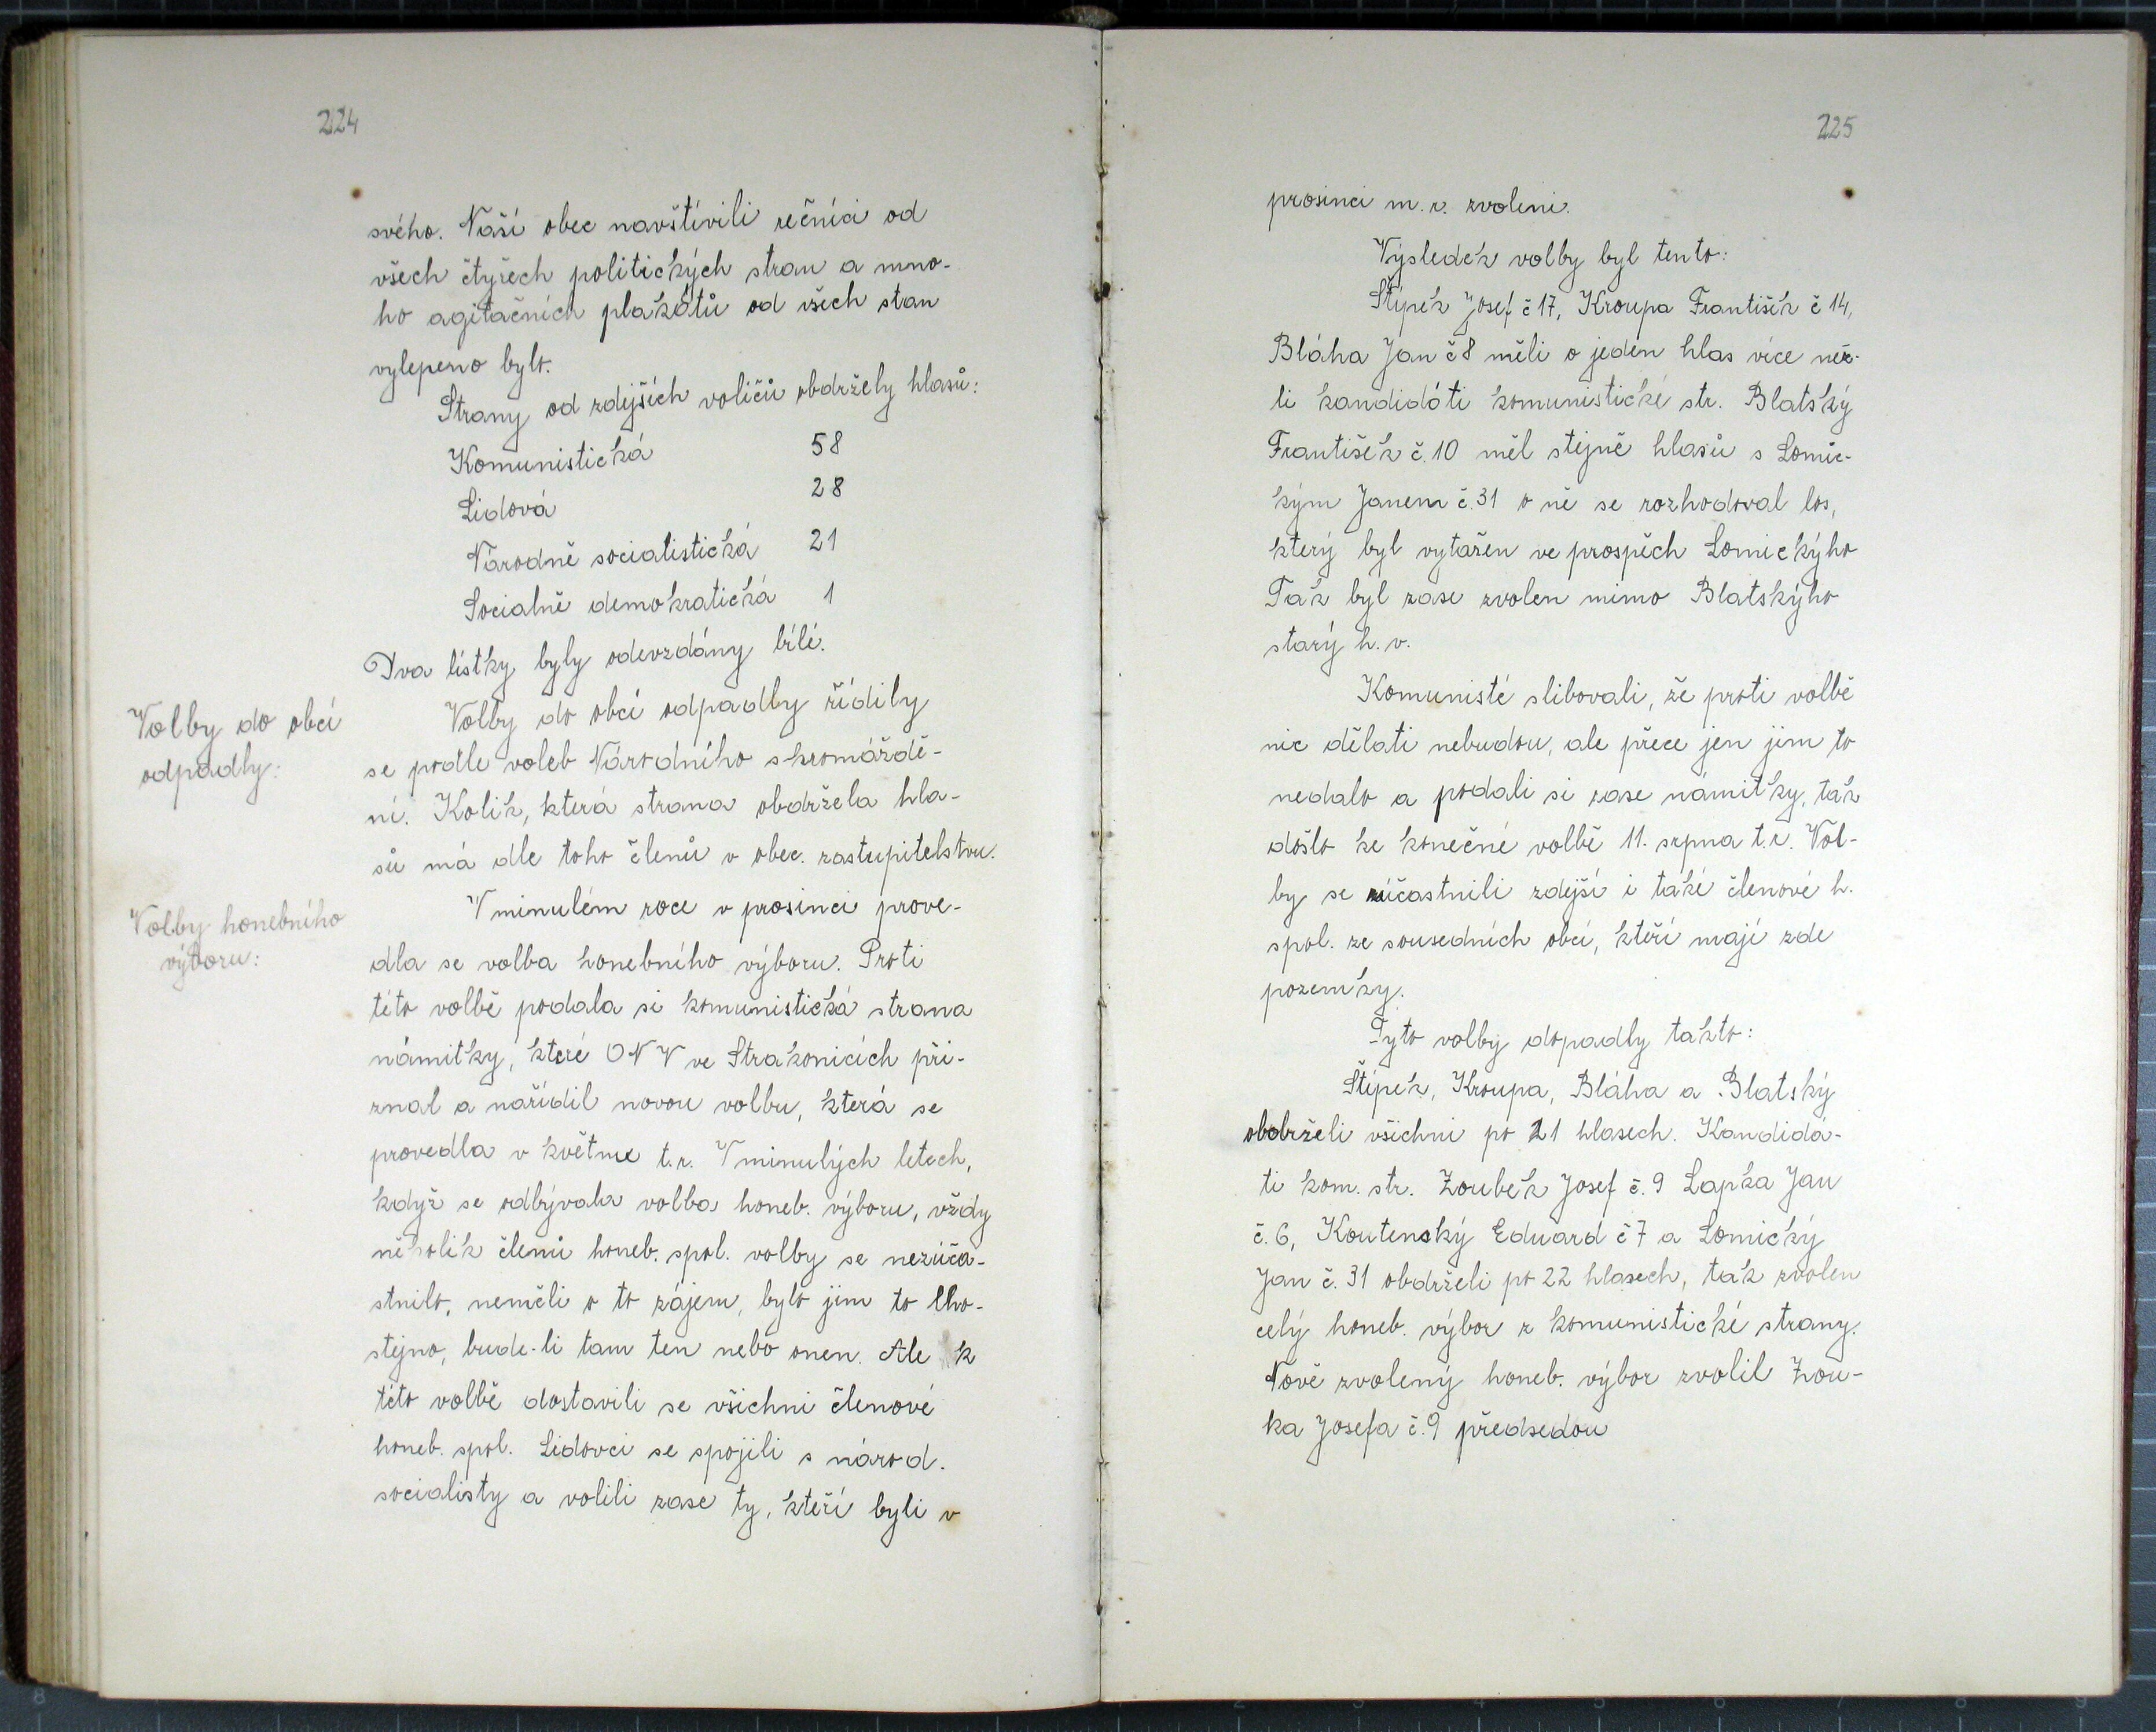 224
svého. Naší obec navštívili rečníci od
všech čtyřech politických stran a mno-
ho agitačních plakátů od všech stan
vylepeno bylo.
Strany od zdejších voličů obdržely hlasů:
Komunistická 58
Lidová 28
Národně socialistická 21
Socialně demokratická 1
Dva lístky byly odevzdány bílé.
Volby do obcí
odpadly:
Volby do obcí odpadly řídily
se podle voleb Národního shromáždě-
ní. Kolik, která strana obdržela hla-
sů má dle toho členů v obec. zastupitelstvu.
Volby honebního
výboru:
V minulém roce v prosinci prove-
dla se volba honebního výboru. Proti
této volbě podala si komunistická strana
námitky, které ONV ve Strakonicích při-
znal a nařídil novou volbu, která se
provedla v květnu t.r. V minulých letech,
když se odbývala volba honeb. výboru, vždy
několik členů honeb. spol. volby se nezúča-
stnilo, neměli o to zájem, bylo jim to lho-
stejno, bude-li tam ten nebo onen. Ale k
této volbě dostavili se všichni členové
honeb. spol. Lidovci se spojili s národ.
socialisty a volili zase ty, kteří byli v
225
prosinci m.r. zvoleni.
Výsledek volby byl tento:
Štípek Josef č 17, Kroupa František č 14,
Bláha Jan č 8 měli o jeden hlas více než-
li kandidáti komunistické str. Blatský
František č. 10 měl stejně hlasů s Lomic-
kým Janem č. 31 o ně se rozhodoval los,
který byl vytažen ve prospěch Lomickýho
Tak byl zase zvolen mimo Blatskýho
starý h. v.
Komunisté slibovali, že proti volbě
nic dělati nebudou, ale přece jen jim to
nedalo a podali si zase námitky, tak
došlo ke konečné volbě 11. srpna t.r. Vol-
by se zúčastnili zdejší i také členové h.
spol. ze sousedních obcí, kteří mají zde
pozemky.
Tyto volby dopadly takto:
Štípek, Kroupa, Bláha a Blatský
obdrželi všichni po 21 hlasech. Kandidá-
ti kom. str. Zoubek Josef č. 9 Lapka Jan
č. 6, Koutenský Eduard č 7 a Lomický
Jan č. 31 obdrželi po 22 hlasech, tak zvolen
celý honeb. výbor z komunistické strany.
Nově zvolený honeb. výbor zvolil Zou-
ka Josefa č. 9 předsedou